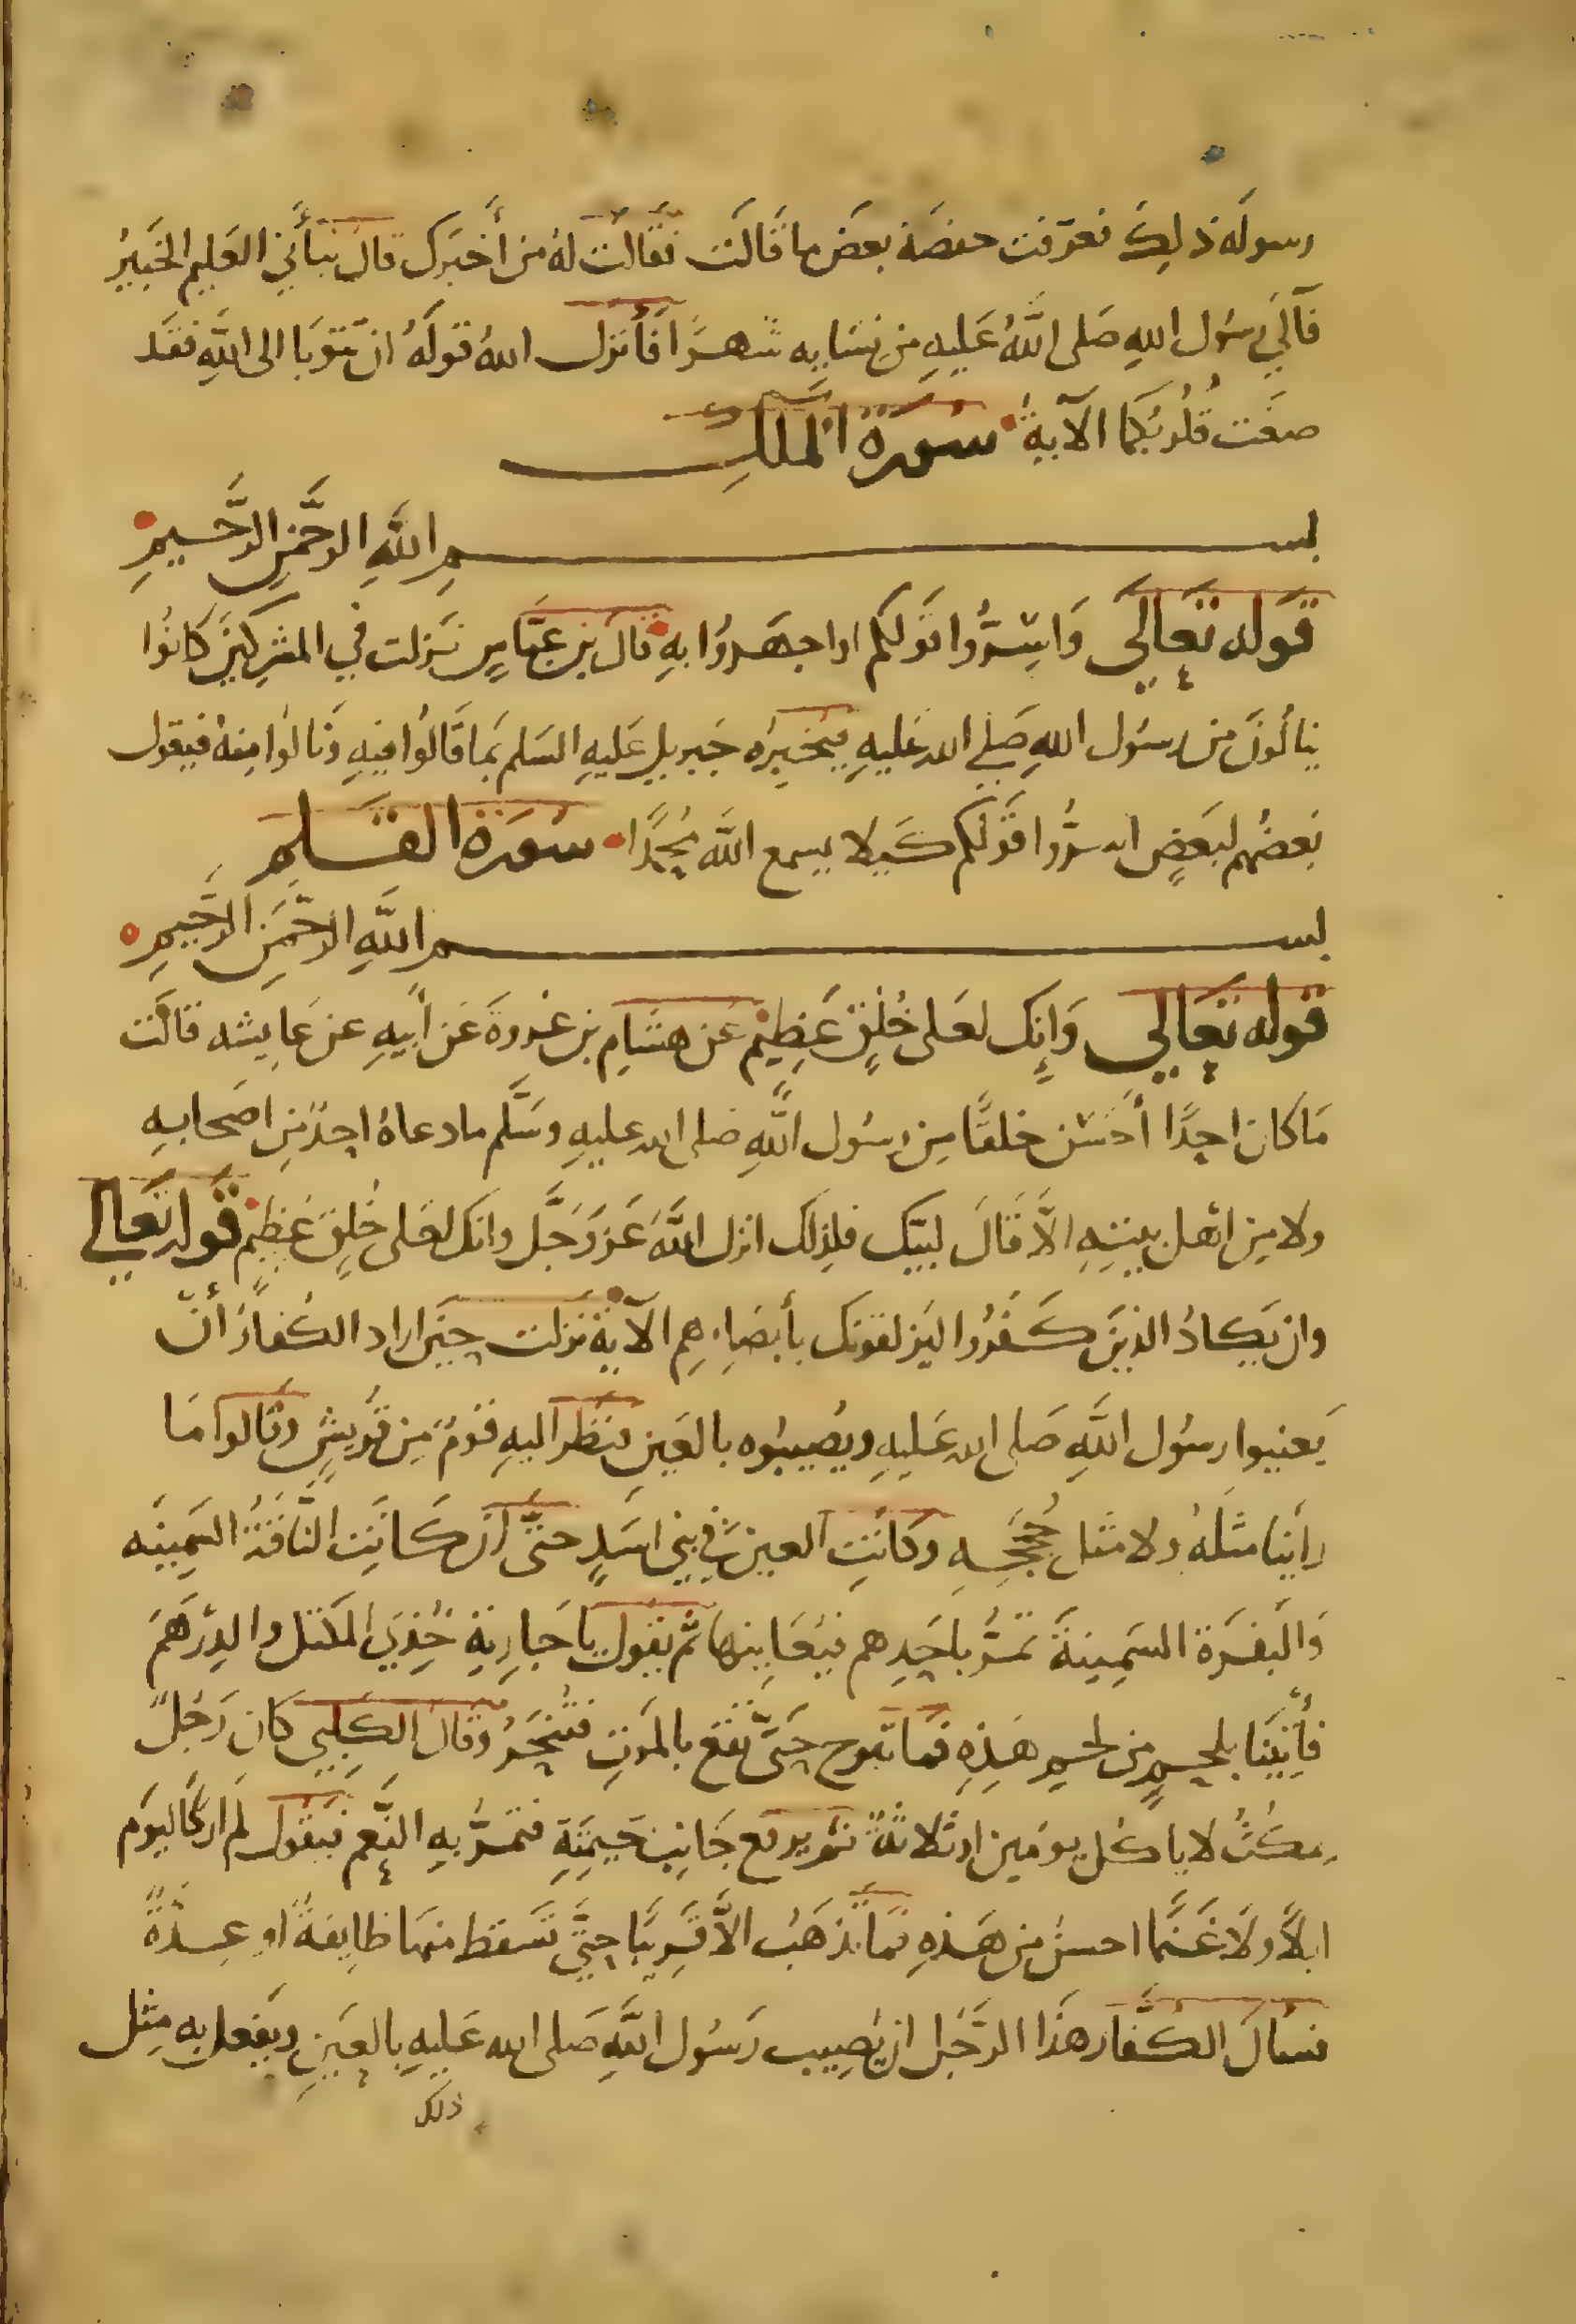 رسوله ذلك فعرّفت حفصة بعض ما قالت فقالت له من أخبرك قال نبأني العليم الخبير
فآلى رسول الله صلى الله عليه من نسايه شهرًا فأنزل الله قوله ان تتوبا الى الله فقد
صغت قلوبكما الآية سورة الملك
بسم الله الرحمن الرحيم
قوله تعالى وَاسِرُّوا قولكم او اجهروا به قال بن عباس نزلت في المشركين كانوا
ينالون من رسول الله صلى الله عليه فيخبره جبريل عليه السلم بما قالوا فيه ونالوا منه فيقول
بعضهم لبعض اسرّوا قولكم كيلا يسمع الله محمد سورة القلم
بسم الله الرحمن الرحيم
قوله تعالى وَإنك لعلى خُلُقٍ عَظِيم عن هشام بن عروة عن أبيه عن عايشه قالت
ما كان احدًا أحسن خلقًا من رسول الله صلى الله عليه وسلّم ما دعاه احدٌ من اصحابه
ولا من اهل بيته الاَّ قال لبيك فلذلك انزل الله عز وجلّ وانك لعلى خُلقٍ عَظِيم قوله تعالى
وان يكاد الذين كفروا ليزلقونك بأبصارهم الآية نزلت حين اراد الكفار أنّ
يعنيوا رسول الله صلى الله عليه ويصيبوه بالعين فنظر اليه قومٌ من قريشٍ وقالوا ما
راينا مثله ولا مثل حُججه وكانت العين في بني اسدٍ حتى ان كانت الناقة السمينه
والبقرة السمينة تمرّ باحدهم فيعاينها ثم يقول يا جارية خذي المكتل والدرهم
فأتينا بلحمٍ من لحم هذه فما تبرح حتى تقع بالموت فتنحر وقال الكلبي كان رجلٌ
يمكث لا ياكل يومين او ثلاثةً ثم يرفع جانب خيمته فتمرّ به النّعم فيقول لم ار كاليوم
ابلاً ولا غنمًا احسن من هذه فما تذهب الاَّ قريبًا حتى تسقط منها طايفةً او عدةً
فسال الكفار هذا الرجل ان يصيب رسول الله صلى الله عليه بالعين ويفعل به مثل
ذلك